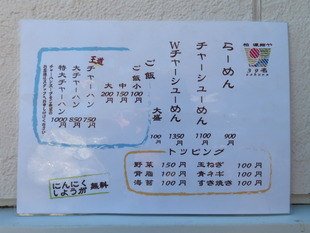 らーめん 900円
チャーシューめん 1100円
Wチャーシューめん 1350円
大盛 100円
ご飯
ご飯小 100円
中 150円
大 200円
王道
チャーハン 750円
大チャーハン 850円
特大チャーハン 1000円
トッピング
野菜 150円 玉ねぎ 100円
背脂 100円 青ネギ 100円
海苔 100円 すき焼き 100円
にんにく
しょうが 無料